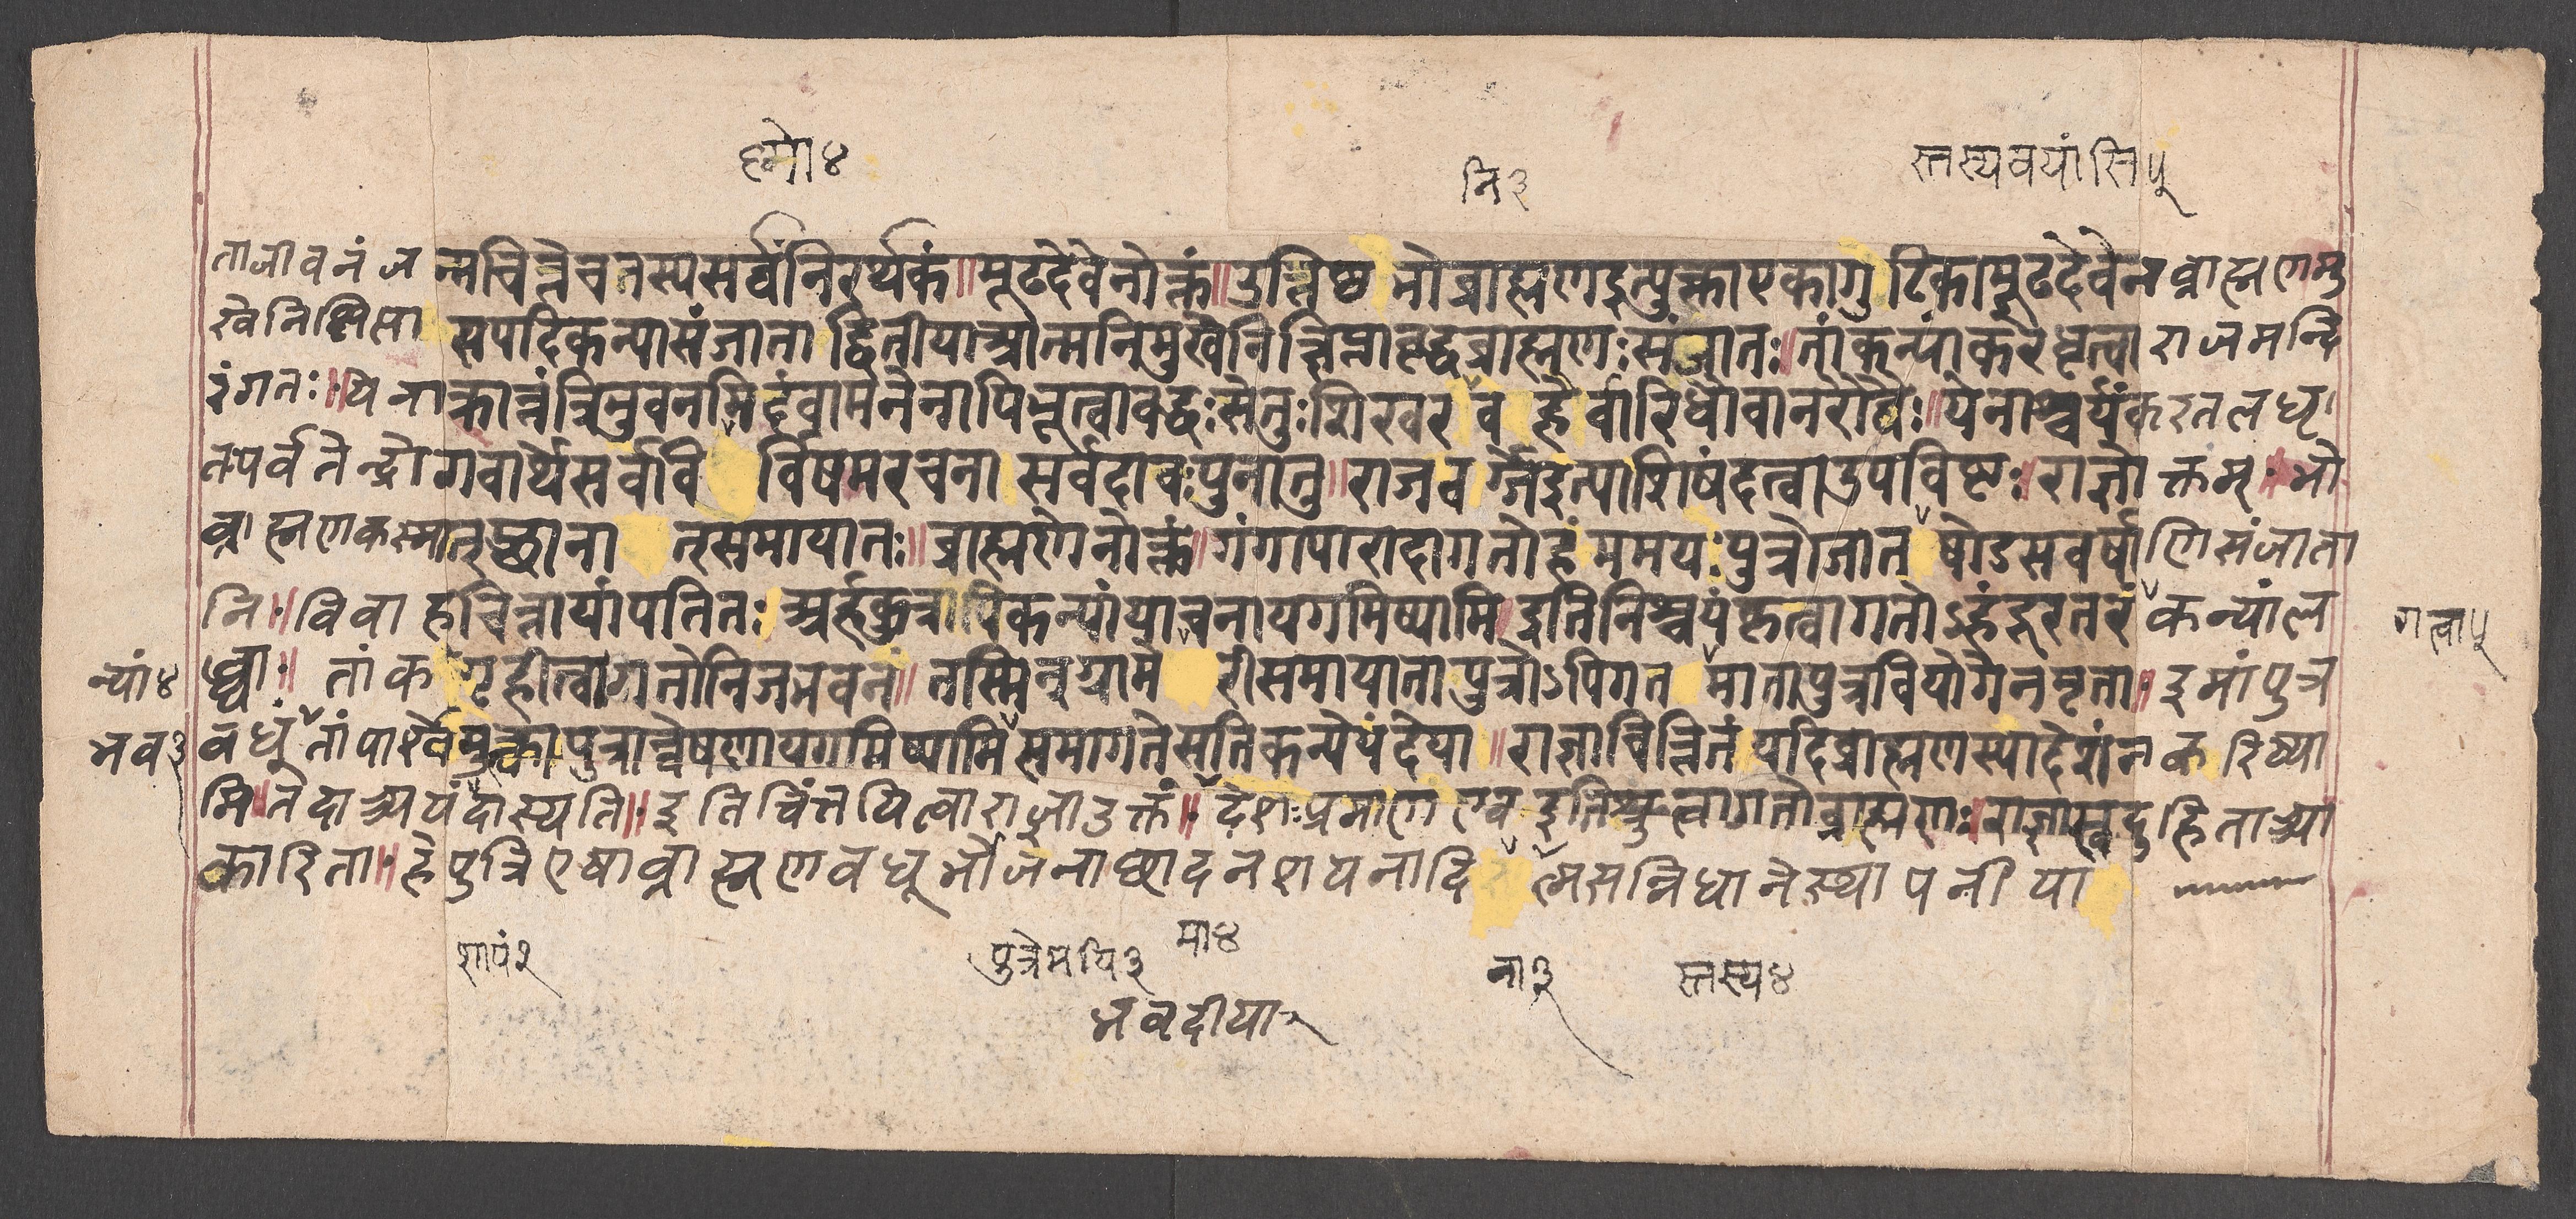 ध्मो४
नि३
स्तस्यवयांसि५
ताजीवनं जन्मचित्तेचतस्यसर्वंनिरर्थकं॥मूढदेवेनोक्तं॥उत्तिष्ठ भोब्राह्मणइत्युक्ताएकागुटिकामूढदेवेनब्राह्मणमु
खेनिक्षिप्ता सपदिकन्यासंजाता द्वितीयाआत्मनिमुखेनिक्षिप्तावृद्धब्राह्मणःसंजातः॥तांकन्यांकरेधृत्वा राजमन्दि
रंगतः॥येनाक्रान्तंत्रिभुवनमिदंवामनेनापिभूत्वाबद्धःसेतुःशिखर व द्दैर्वारिधौवानरौघैः॥येनाश्चर्यंकरतलधृ
तपर्वतेन्द्रोगवार्थेसर्वावि र्विषमरचना सर्वदावःपुनातु॥राजवर्ग्गेइत्याशिषंदत्वाउपविष्टः॥राज्ञोक्तम्॥भो
ब्राह्मणकस्मात्स्थाना त्समायातः॥ब्राह्मणेनोक्तं॥गंगापारादागतोहं ममयःपुत्रोजात षोडसवर्षाणिसंजाता
नि॥विवाहचिन्तायांपतितः अहंकुत्रापिकन्यांयाचनायगमिष्यामि इतिनिश्चयंकृत्वागतोऽहंदूरतरं कन्यांल
गत्वा५
ब्ध्वा॥ तांक गृहीत्वागतोनिजभवनं॥ तस्मिन्ग्रामे रीसमायाता पुत्रोऽपिगत मातापुत्रवियोगेनमृता॥इमांपुत्र
न्यां४
वधूं तांपार्श्वेमुत्कापुत्रान्वेषणायगमिष्यामि समागतेसतिकन्येयंदेया॥राज्ञाचिन्तितं यदिब्राह्मणस्यादेशंनकरिष्या
भव३
मि॥तदाऽयं दास्यति॥इतिचिंतयित्वाराज्ञाउक्तं॥ देशःप्रमाणएव इतिश्रुत्वागतोब्राह्मणः॥राज्ञास्वदुहिताआ
कारिता॥हेपुत्रिएषाब्राह्मणवधूभोजनाछादनशयनादि त्मसन्निधानेस्थापनीया
शापं२
पुत्रेमयि३
मा४
ना३
स्तस्य४
भवदीया२